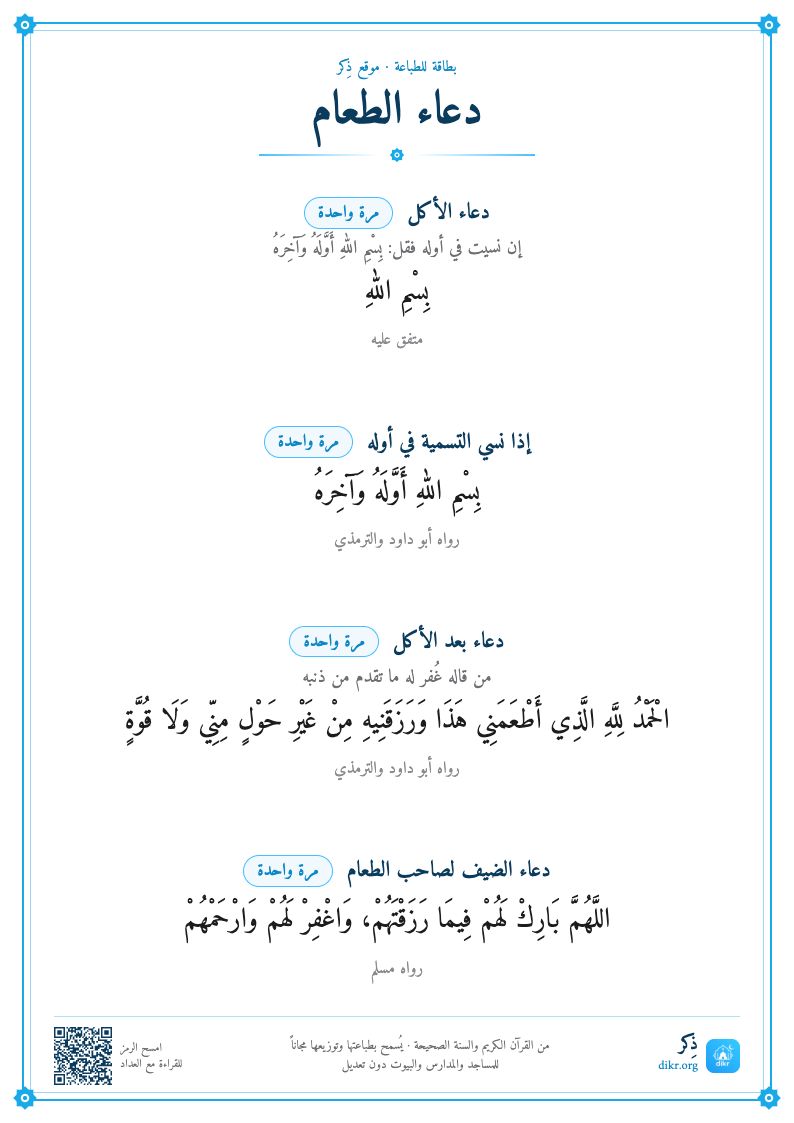 بطاقة للطباعة · موقع ذِكر
دعاء الطعام
دعاء الأكل مرة واحدة
إن نسيت في أوله فقل: بِسْمِ اللهِ أَوَّلَهُ وَآخِرَهُ
بِسْمِ اللهِ
متفق عليه
إذا نسي التسمية في أوله مرة واحدة
بِسْمِ اللهِ أَوَّلَهُ وَآخِرَهُ
رواه أبو داود والترمذي
دعاء بعد الأكل مرة واحدة
من قاله غُفر له ما تقدم من ذنبه
الْحَمْدُ لِلَّهِ الَّذِي أَطْعَمَنِي هَذَا وَرَزَقَنِيهِ مِنْ غَيْرِ حَوْلٍ مِنِّي وَلَا قُوَّةٍ
رواه أبو داود والترمذي
دعاء الضيف لصاحب الطعام مرة واحدة
اللَّهُمَّ بَارِكْ لَهُمْ فِيمَا رَزَقْتَهُمْ، وَاغْفِرْ لَهُمْ وَارْحَمْهُمْ
رواه مسلم
dikr
ذِكر
dikr.org
من القرآن الكريم والسنة الصحيحة · يُسمح بطباعتها وتوزيعها مجاناً
للمساجد والمدارس والبيوت دون تعديل
امسح الرمز
للقراءة مع العداد